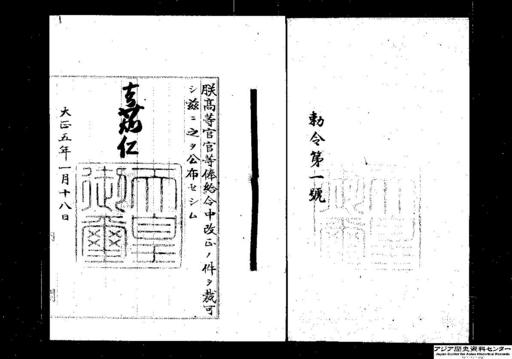 勅令第一號
朕高等官官等俸給令中改正ノ件ヲ裁可
シ茲ニ之ヲ公布セシム
嘉仁
天皇
御璽
大正五年一月十八日
アジア歴史資料センター
Japan Center for Asian Historical Records